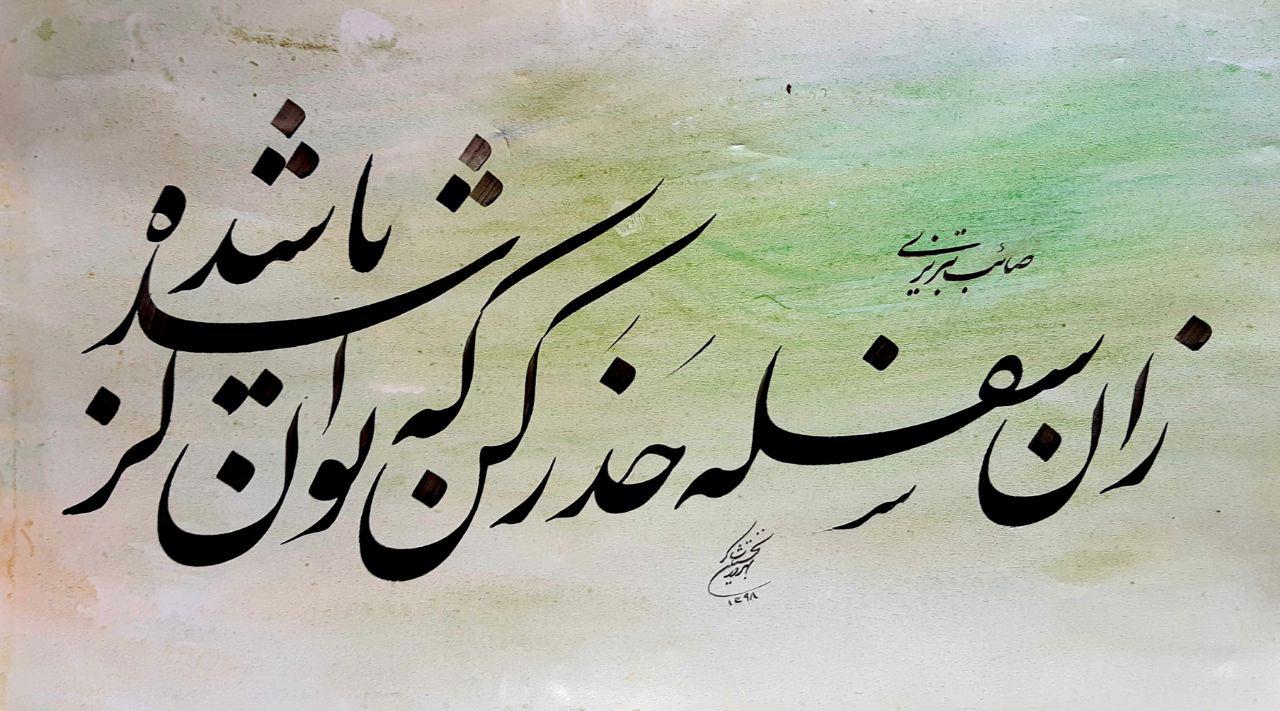 صائب تبریزی
زان سفله حذر کن که توانگر شده باشد
۱۳۹۸